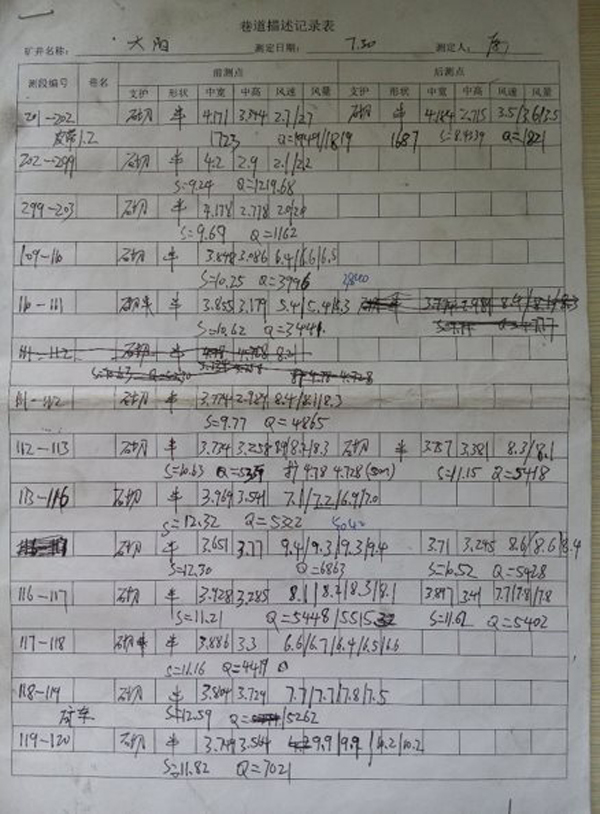 巷道描述记录表
矿井名称: 大阳 测定日期: 7.30 测定人:
测段编号 巷名 前测点 后测点
支护 形状 中宽 中高 风速 风量 支护 形状 中宽 中高 风速 风量
201-202 砌 半 4.171 3.844 2.7/2.7 砌 半 4.184 2.715 3.5/3.6/3.5
皮带1.2 1723 Q=1949/1819 1687 S=8.9539 Q=1821
202-299 砌 半 4.2 2.9 2.1/2.2
S=9.24 Q=1219.68
299-203 砌 半 4.178 2.778 2.0/2.0
S=9.69 Q=1162
109-110 砌 半 3.848 3.086 6.4/6.6/6.5
S=10.25 Q=3996 3840
110-111 砌 半 3.855 3.179 5.4/5.4/5.3
S=10.62 Q=3441
111-112
111-112 砌 半 3.774 2.927 8.4/8.1/8.3
S=9.77 Q=4865
112-113 砌 半 3.734 3.258 8.9/8.2/8.3 砌 半 3.757 3.381 8.3/8.1
S=10.63 Q=5339 87 4.78 4.728 (50m) S=11.15 Q=5418
113-116 砌 半 3.969 3.541 7.1/7.2/6.9/7.0
S=12.32 Q=5322 5040
砌 半 3.651 3.77 9.4/9.3/9.3/9.4 3.71 3.245 8.6/8.6/8.4
S=12.30 Q=6863 S=10.52 Q=5428
116-117 砌 半 3.928 3.285 8.1/8.2/8.3/8.1 3.897 3.41 7.7/7.8/7.8
S=11.21 Q=5448/5515 S=11.62 Q=5402
117-118 砌 半 3.886 3.3 6.6/6.7/6.4/6.5/6.6
S=11.16 Q=4419
118-119 砌 半 3.804 3.729 7.7/7.7/7.8/7.5
矿车 S=12.59 Q= 5262
119-120 砌 半 3.749 3.564 9.9/9.9/10.2/10.2
S=11.82 Q=7021